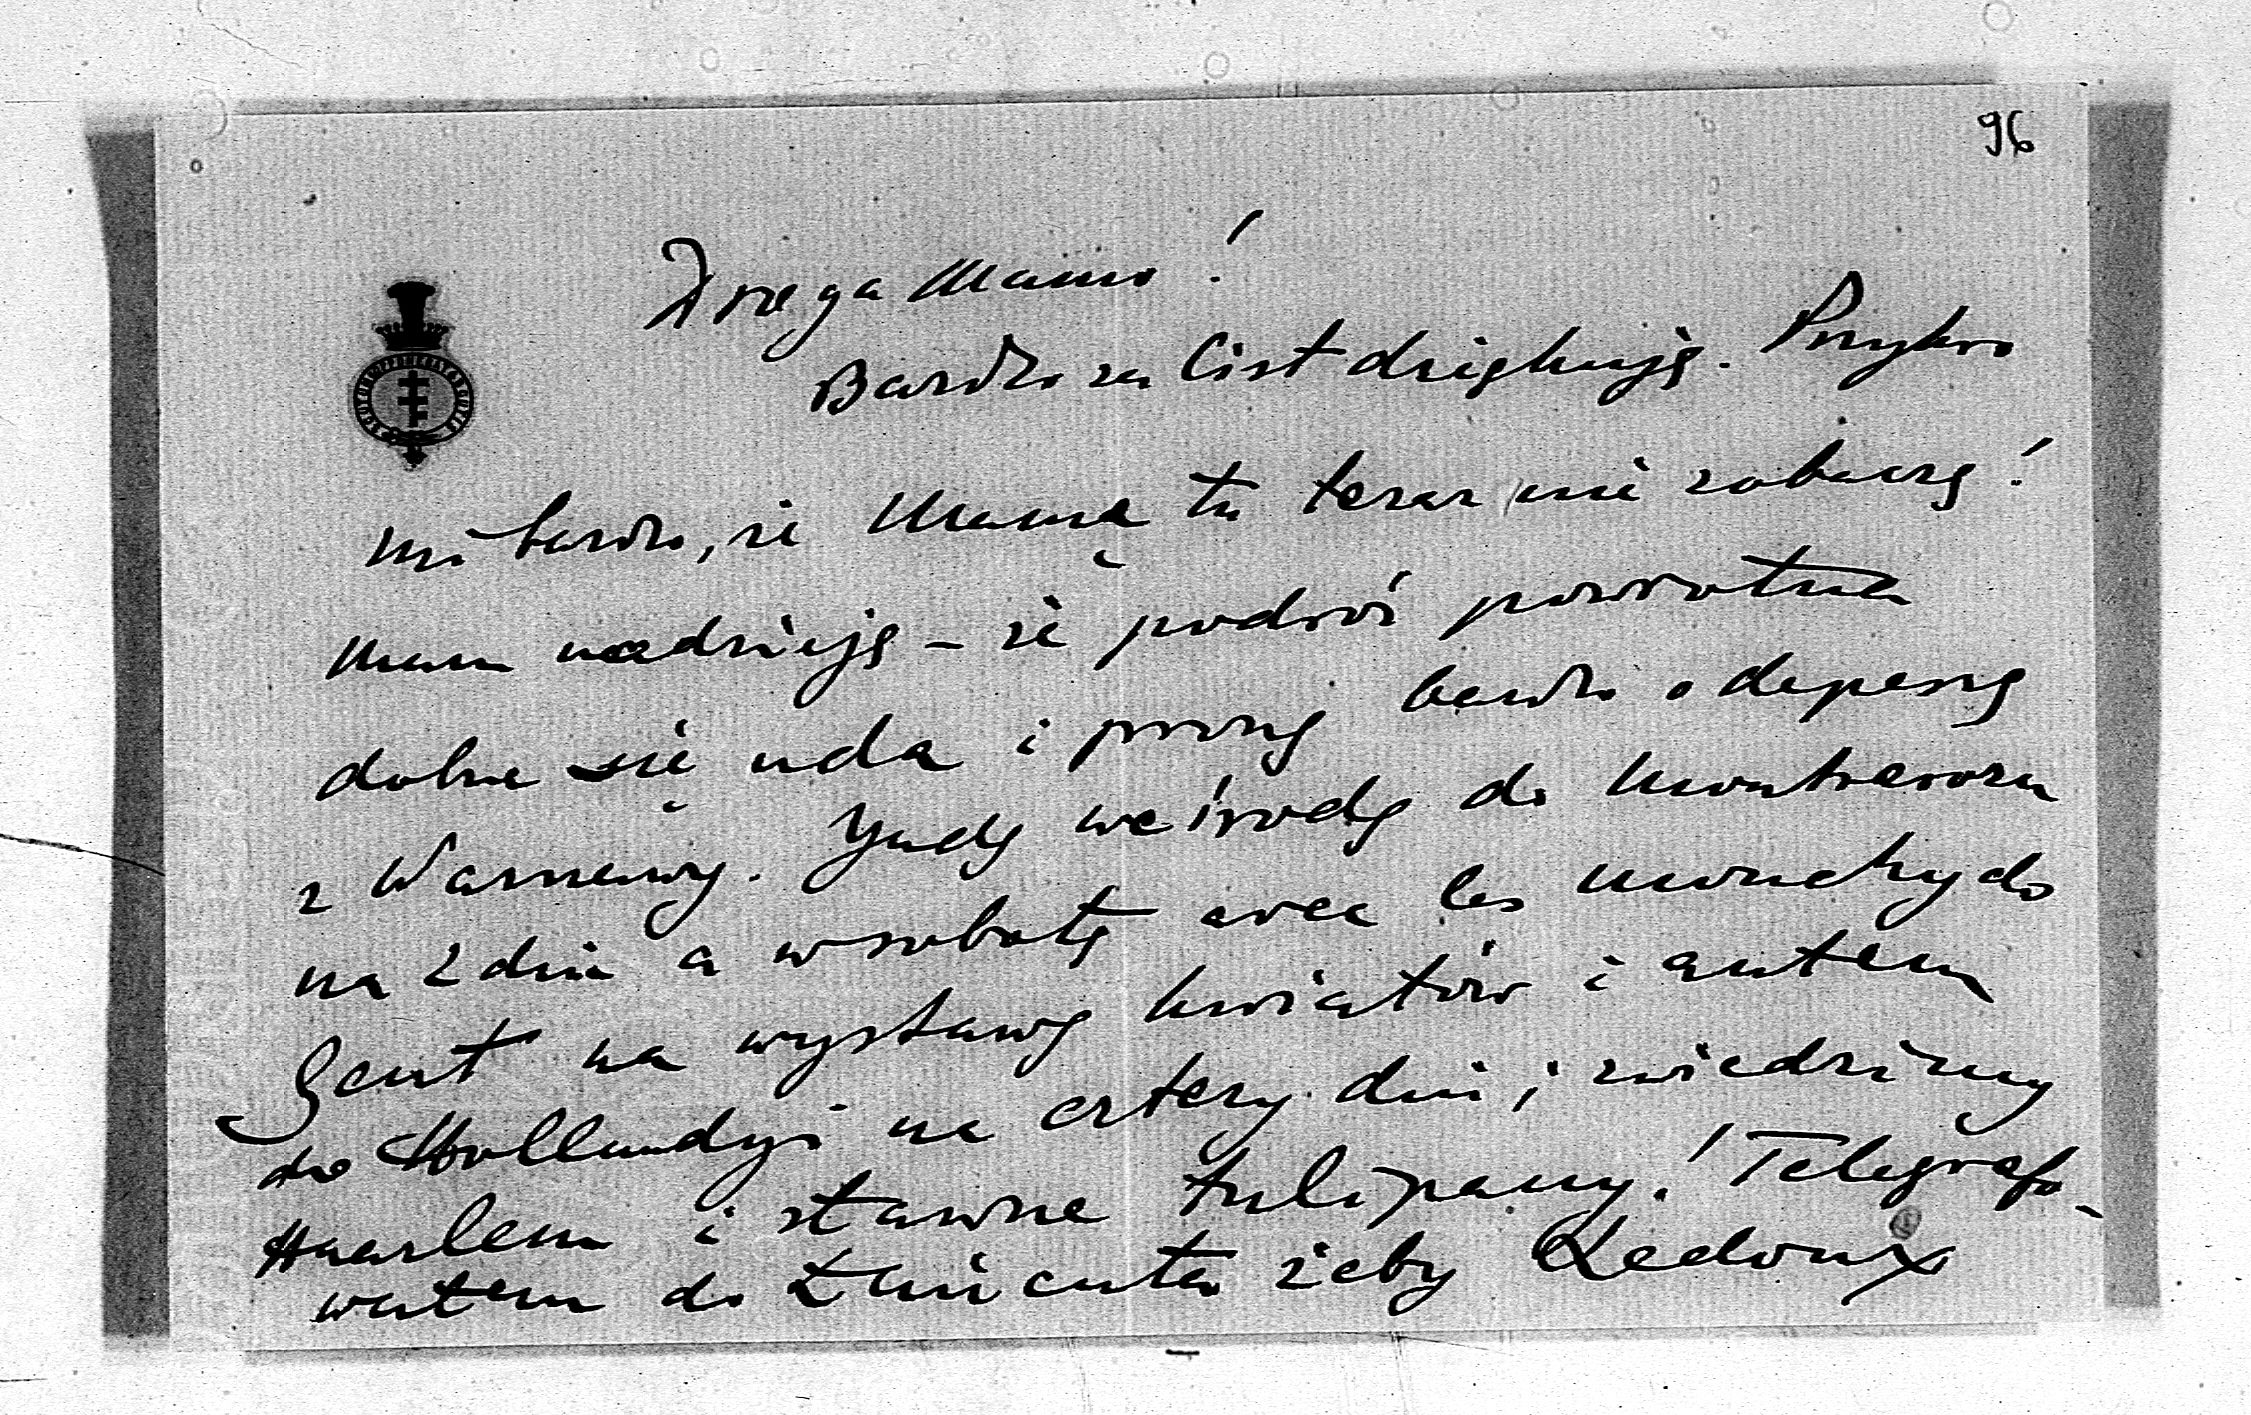 96
Droga Mamo!
Bardzo za list dziękuję. Przykro
mi bardzo, że Mamę tu teraz nie zobaczę!
Mam nadzieję – że podróż powrotna
dobrze się uda i proszę bardzo o depeszę
z Warszawy. Jadę we środę do Montrésoru
na 2 dni a w sobotę avec les do
Gent na wystawę kwiatów i autem
do Hollandyi na cztery dni; zwiedzimy
Haarlem i sławne tulipany! Telegrafo-
wałem do Łańcuta żeby Ledoux